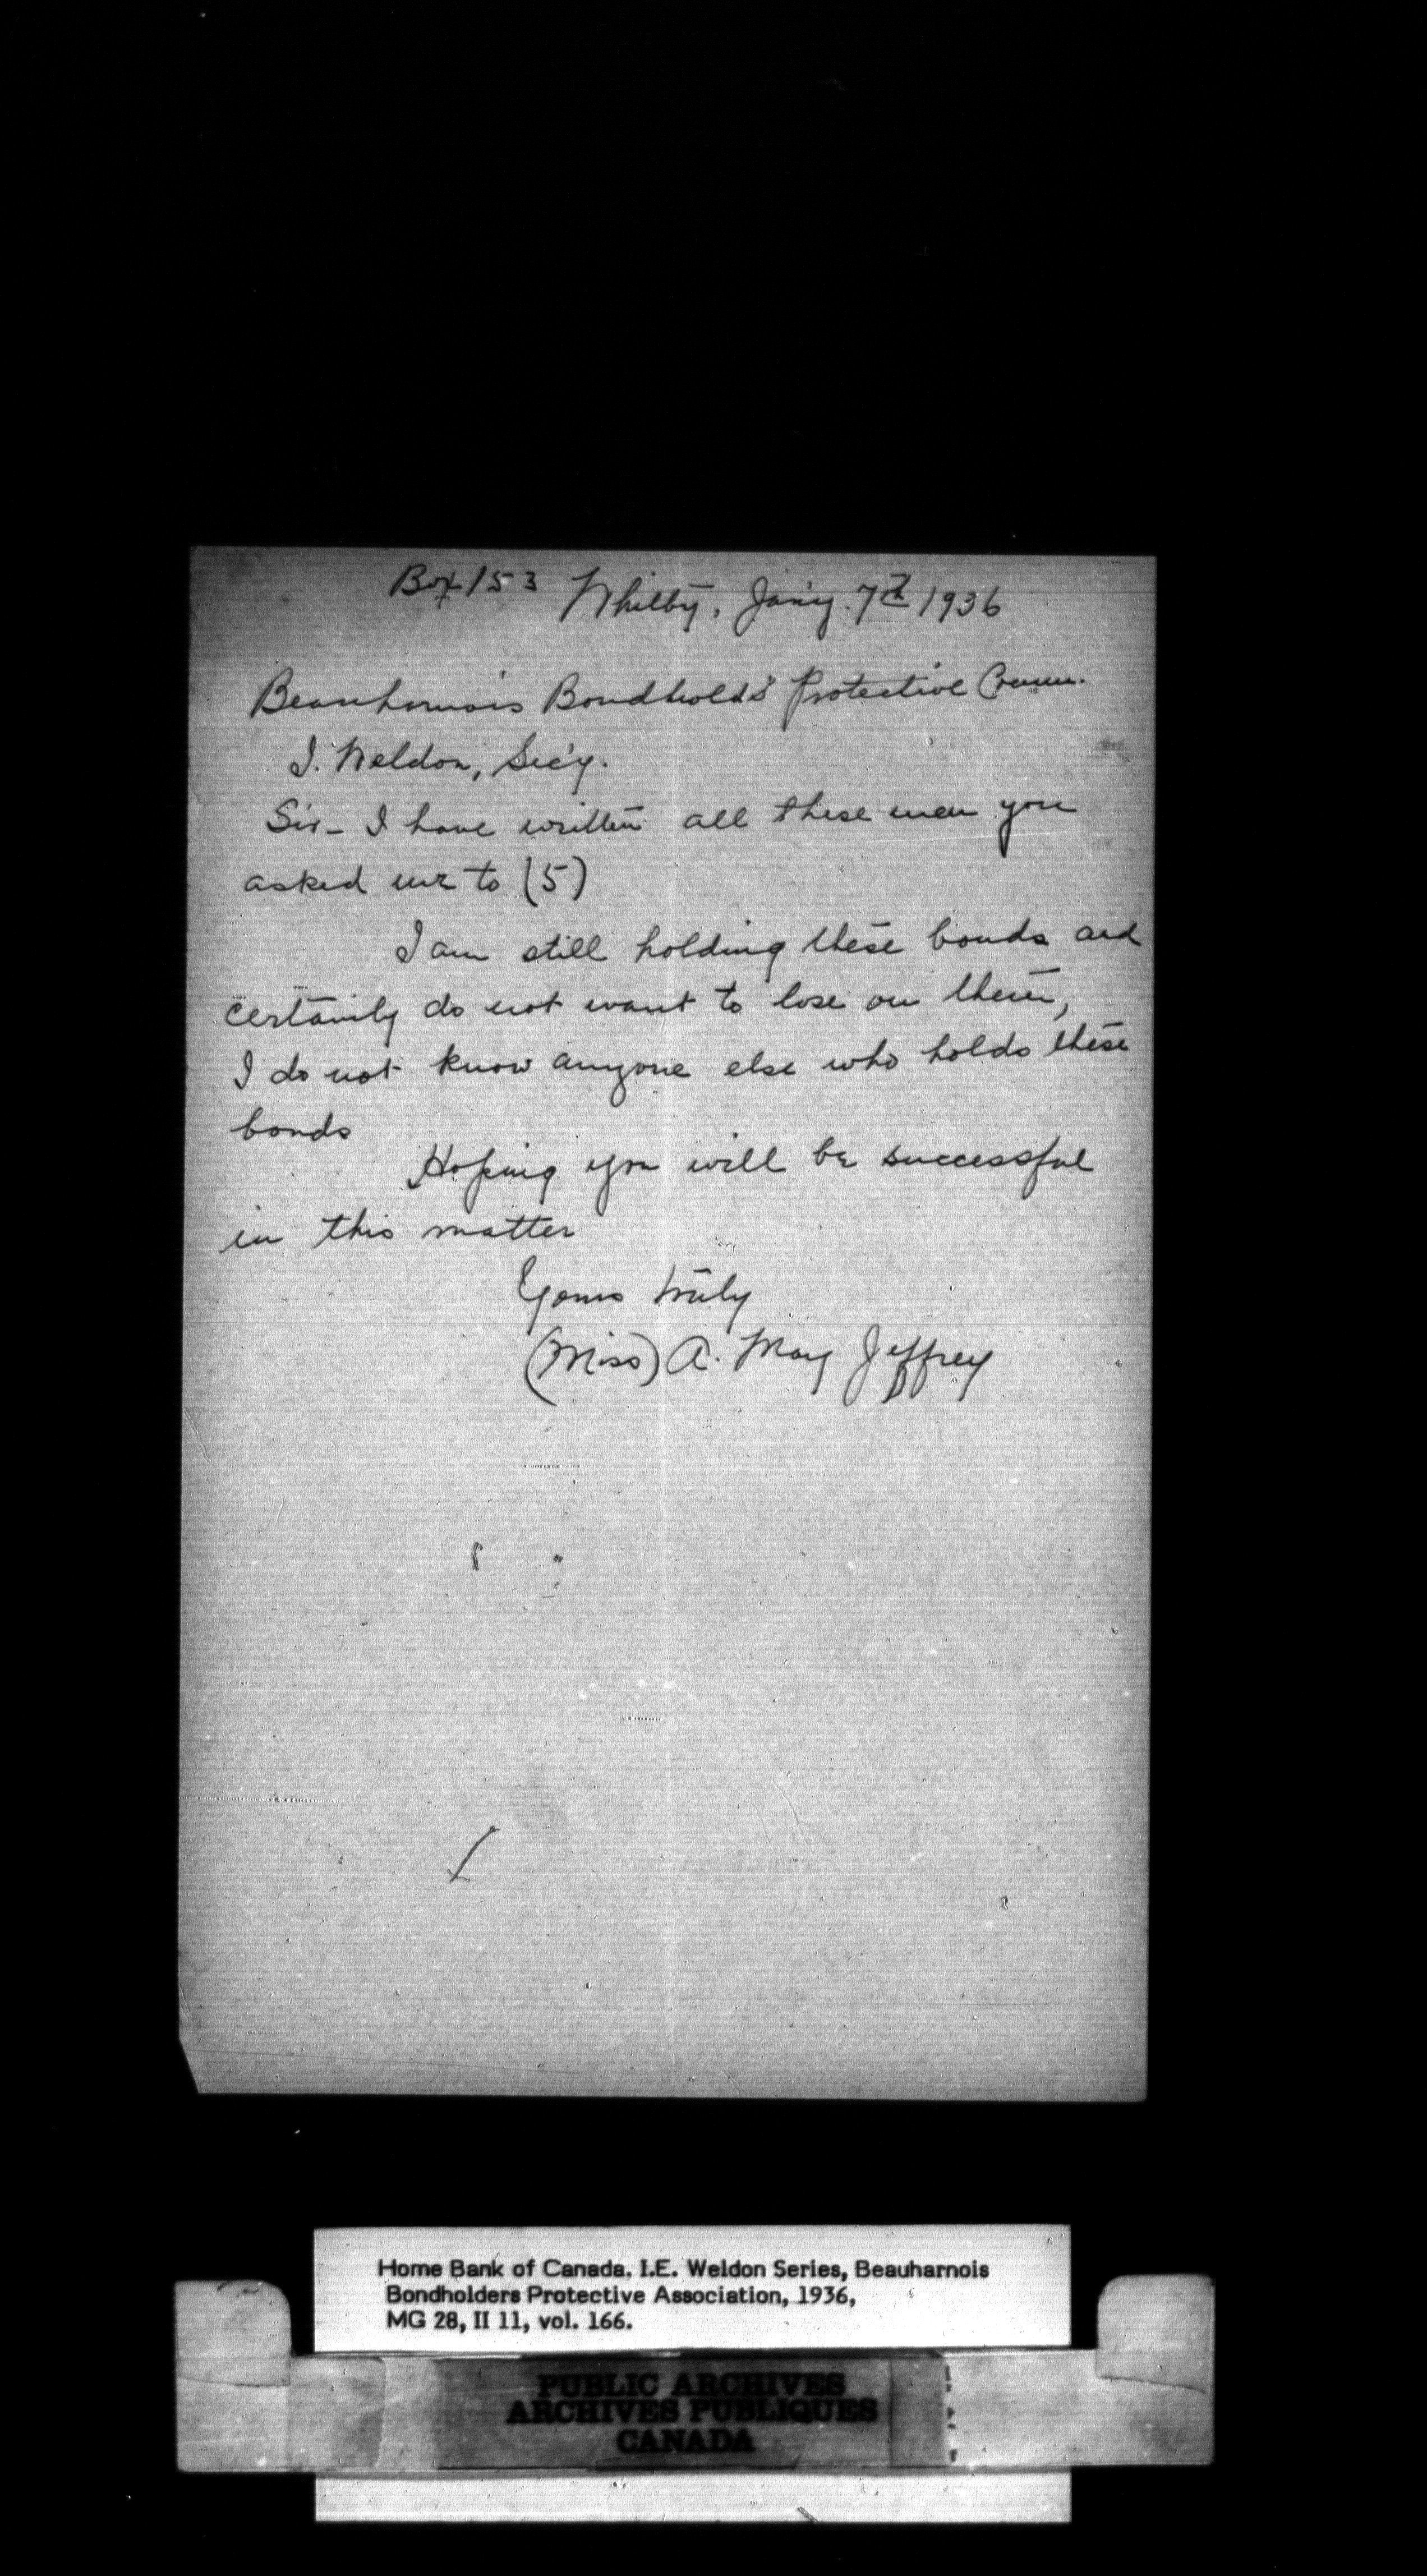 Box 153 Whitby, Jan'y. 7th 1936
Beauharnois Bondhold's Protective Comm.
I. Weldon, Sec'y.
Sir - I have written all these men you
asked me to (5)
I am still holding these bonds and
certainly do not want to lose on them,
I do not know anyone else who holds these
bonds
Hoping you will be successful
in this matter
Yours truly
(Miss) A. May Jeffrey
Home Bank of Canada. I.E. Weldon Series, Beauharnois
Bondholders Protective Association, 1936,
MG 28, II 11, vol. 166.
PUBLIC ARCHIVES
ARCHIVES PUBLIQUES
CANADA